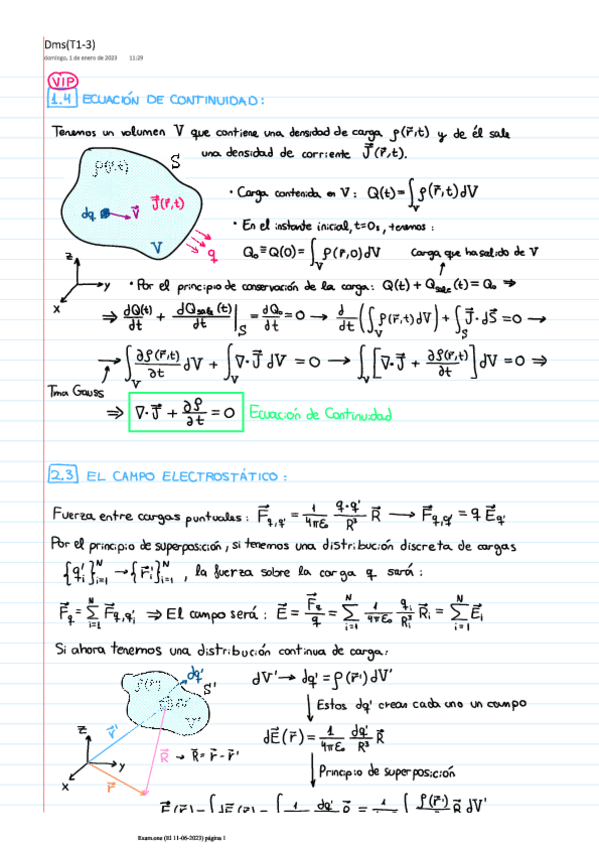 Dms(T1-3)
domingo, 1 de enero de 2023 11:29
VIP
1.4 ECUACIÓN DE CONTINUIDAD:
Tenemos un volumen V que contiene una densidad de carga ρ(r⃗,t) y de él sale
una densidad de corriente J⃗(r⃗,t).
ρ(r⃗,t) S
J⃗(r⃗,t)
dq v⃗
V q
· Carga contenida en V: Q(t) = ∫_V ρ(r⃗,t) dV
· En el instante inicial, t=0s, tenemos:
Q₀ ≡ Q(0) = ∫_V ρ(r⃗,0) dV Carga que ha salido de V
z y x
· Por el principio de conservación de la carga: Q(t) + Q_sale(t) = Q₀ ⇒
⇒ dQ(t)/dt + dQ_sale(t)/dt |_S = dQ₀/dt = 0 → d/dt (∫_V ρ(r⃗,t) dV) + ∫_S J⃗·dS⃗ = 0 →
→ ∫_V ∂ρ(r⃗,t)/∂t dV + ∫_V ∇·J⃗ dV = 0 → ∫_V [∇·J⃗ + ∂ρ(r⃗,t)/∂t] dV = 0 ⇒
Tma Gauss
⇒ ∇·J⃗ + ∂ρ/∂t = 0 Ecuación de Continuidad
2.3 EL CAMPO ELECTROSTÁTICO:
Fuerza entre cargas puntuales: F⃗_q,q' = 1/4πε₀ q·q'/R³ R⃗ → F⃗_q,q' = q E⃗_q'
Por el principio de superposición, si tenemos una distribución discreta de cargas
{q'_i}_{i=1}^N → {r⃗'_i}_{i=1}^N, la fuerza sobre la carga q será:
F⃗_q = Σ_{i=1}^N F⃗_q,q'_i ⇒ El campo será: E⃗ = F⃗_q/q = Σ_{i=1}^N 1/4πε₀ q_i/R_i³ R⃗_i = Σ_{i=1}^N E⃗_i
Si ahora tenemos una distribución continua de carga:
dq'
S' V'
dV' → dq' = ρ(r⃗') dV'
Estos dq' crean cada uno un campo
z y x
r⃗' r⃗
R⃗ → R⃗ = r⃗ - r⃗'
dE⃗(r⃗) = 1/4πε₀ dq'/R³ R⃗
Principio de superposición
Exam.one (El 11-06-2023) página 1